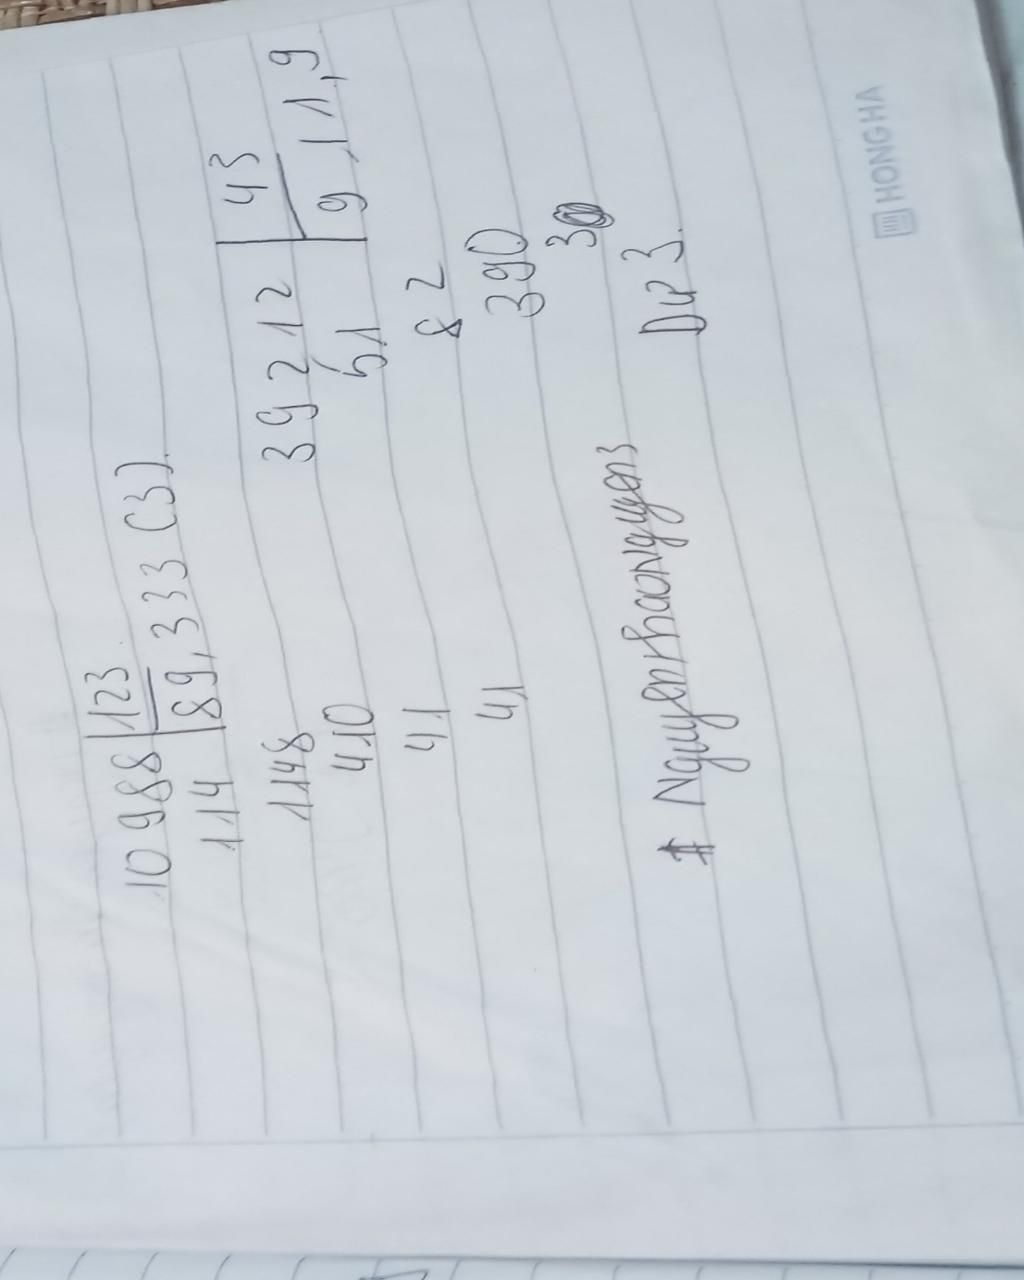 10988 123
114 89,333 (3)
1148
410
41
41
39212 43
51 9,11,9
82
390
3
Dư 3.
# Nguyenthaonguyen3
HONG HA